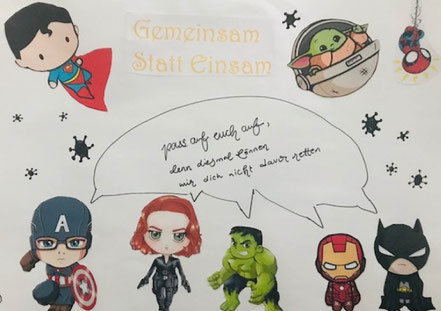 Gemeinsam
Statt Einsam
pass auf euch auf,
denn diesmal können
wir dich nicht davor retten
A